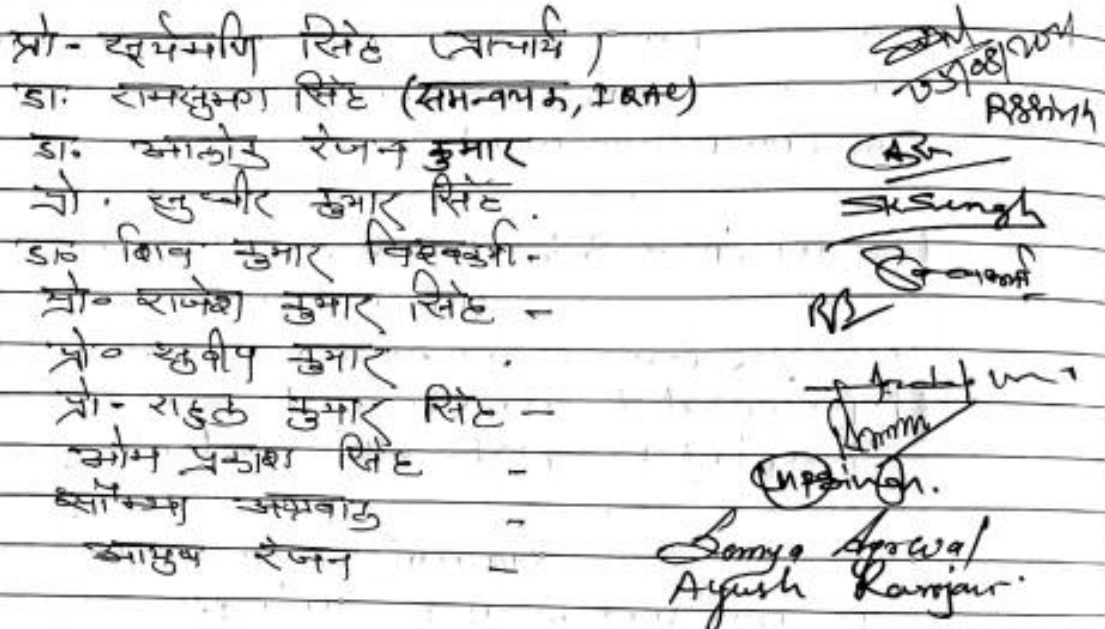 प्रो- सूर्यमणि सिंह (प्राचार्य)
डा. रामसुभग सिंह (समन्वयक, IQAC) RSSingh
डा. आलोक रंजन कुमार
प्रो. सुधीर कुमार सिंह. SKSingh
डा० शिव कुमार विश्वकर्मा-
प्रो० राजेश कुमार सिंह -
प्रो० सुदीप कुमार
प्रो- राहुल कुमार सिंह -
ओम प्रकाश सिंह -
सौम्या अग्रवाल - Somya Agrwal
आयुष रंजन - Ayush Ranjan